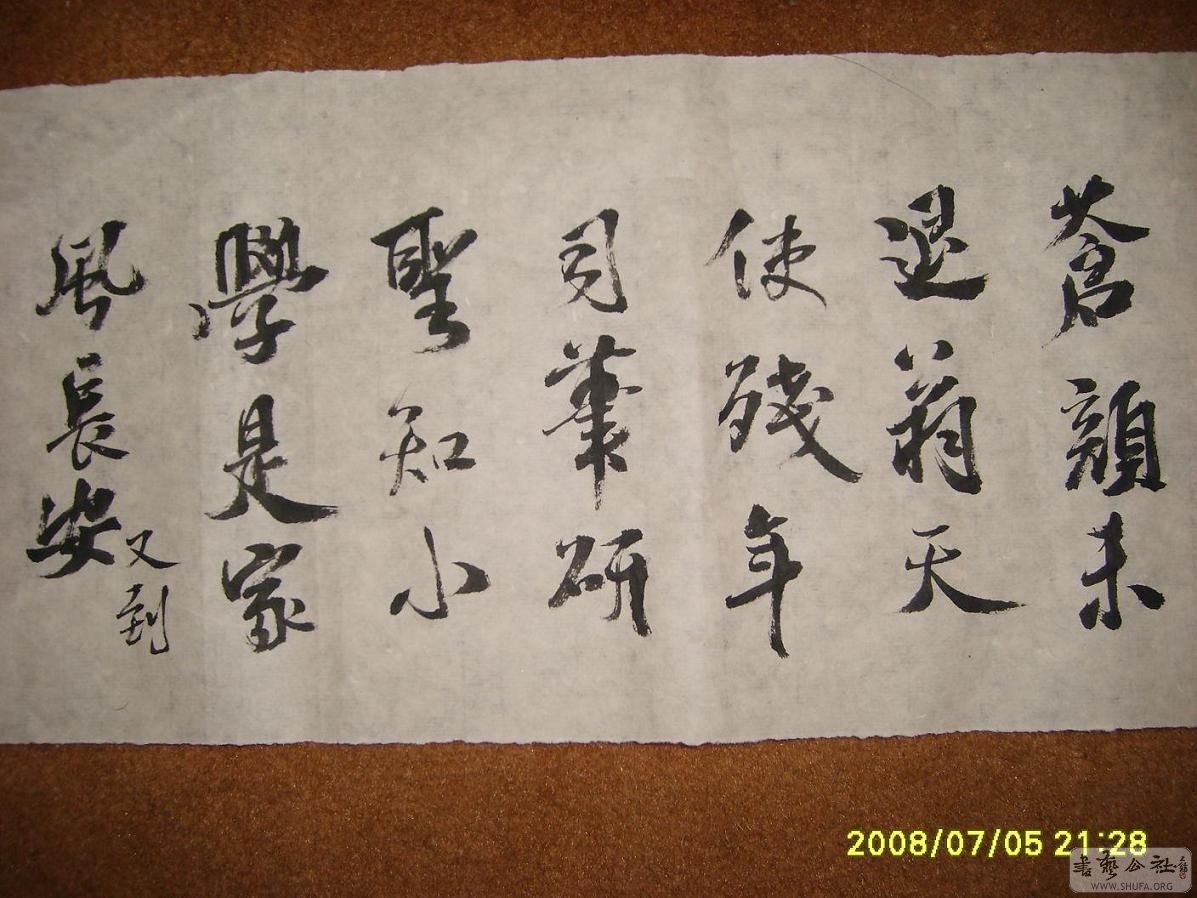 蒼顏未
退翁天
使殘年
司筆研
聖知小
學是家
風長安
又到
2008/07/05 21:28
書藝公社
WWW.SHUFA.ORG